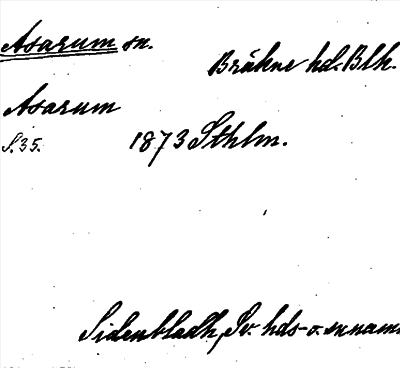 Asarum sn.
Bräkne hd. Blk.
Asarum
S. 35.
1873 Sthlm.
Sidenbladh, Sv. hds- o. snnamn